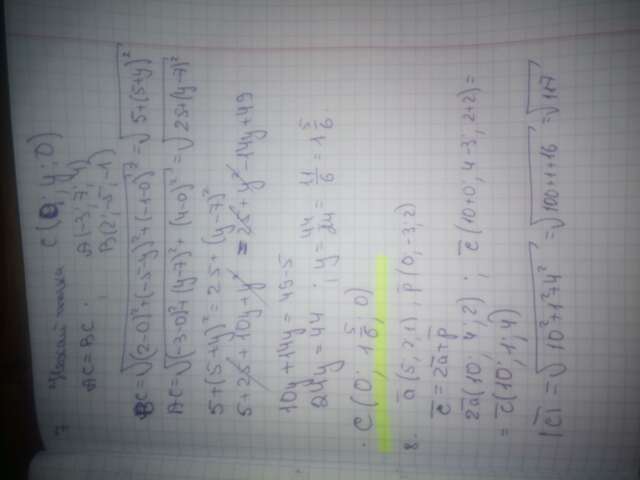 7 C(0; y; 0)
AC = BC. A(-3; 7; 4)
B(2; -5; -1)
BC = √(2-0)²+(-5-y)²+(-1-0)² = √5+(5+y)²
AC = √(-3-0)²+(y-7)²+(4-0)² = √25+(y-7)²
5+(5+y)² = 25+(y-7)²
5+25+10y+y² = 25+y²-14y+49
10y+14y = 49-5
24y = 44 ; y = 44/24 = 11/6 = 1 5/6.
C(0; 1 5/6; 0)
8. a(5; 2; 1), p(0; -3; 2)
c̅ = 2a̅+p̅
2a̅(10; 4; 2) ; c̅(10+0; 4-3; 2+2) =
= c̅(10; 1; 4)
|c̅| = √10²+1²+4² = √100+1+16 = √117